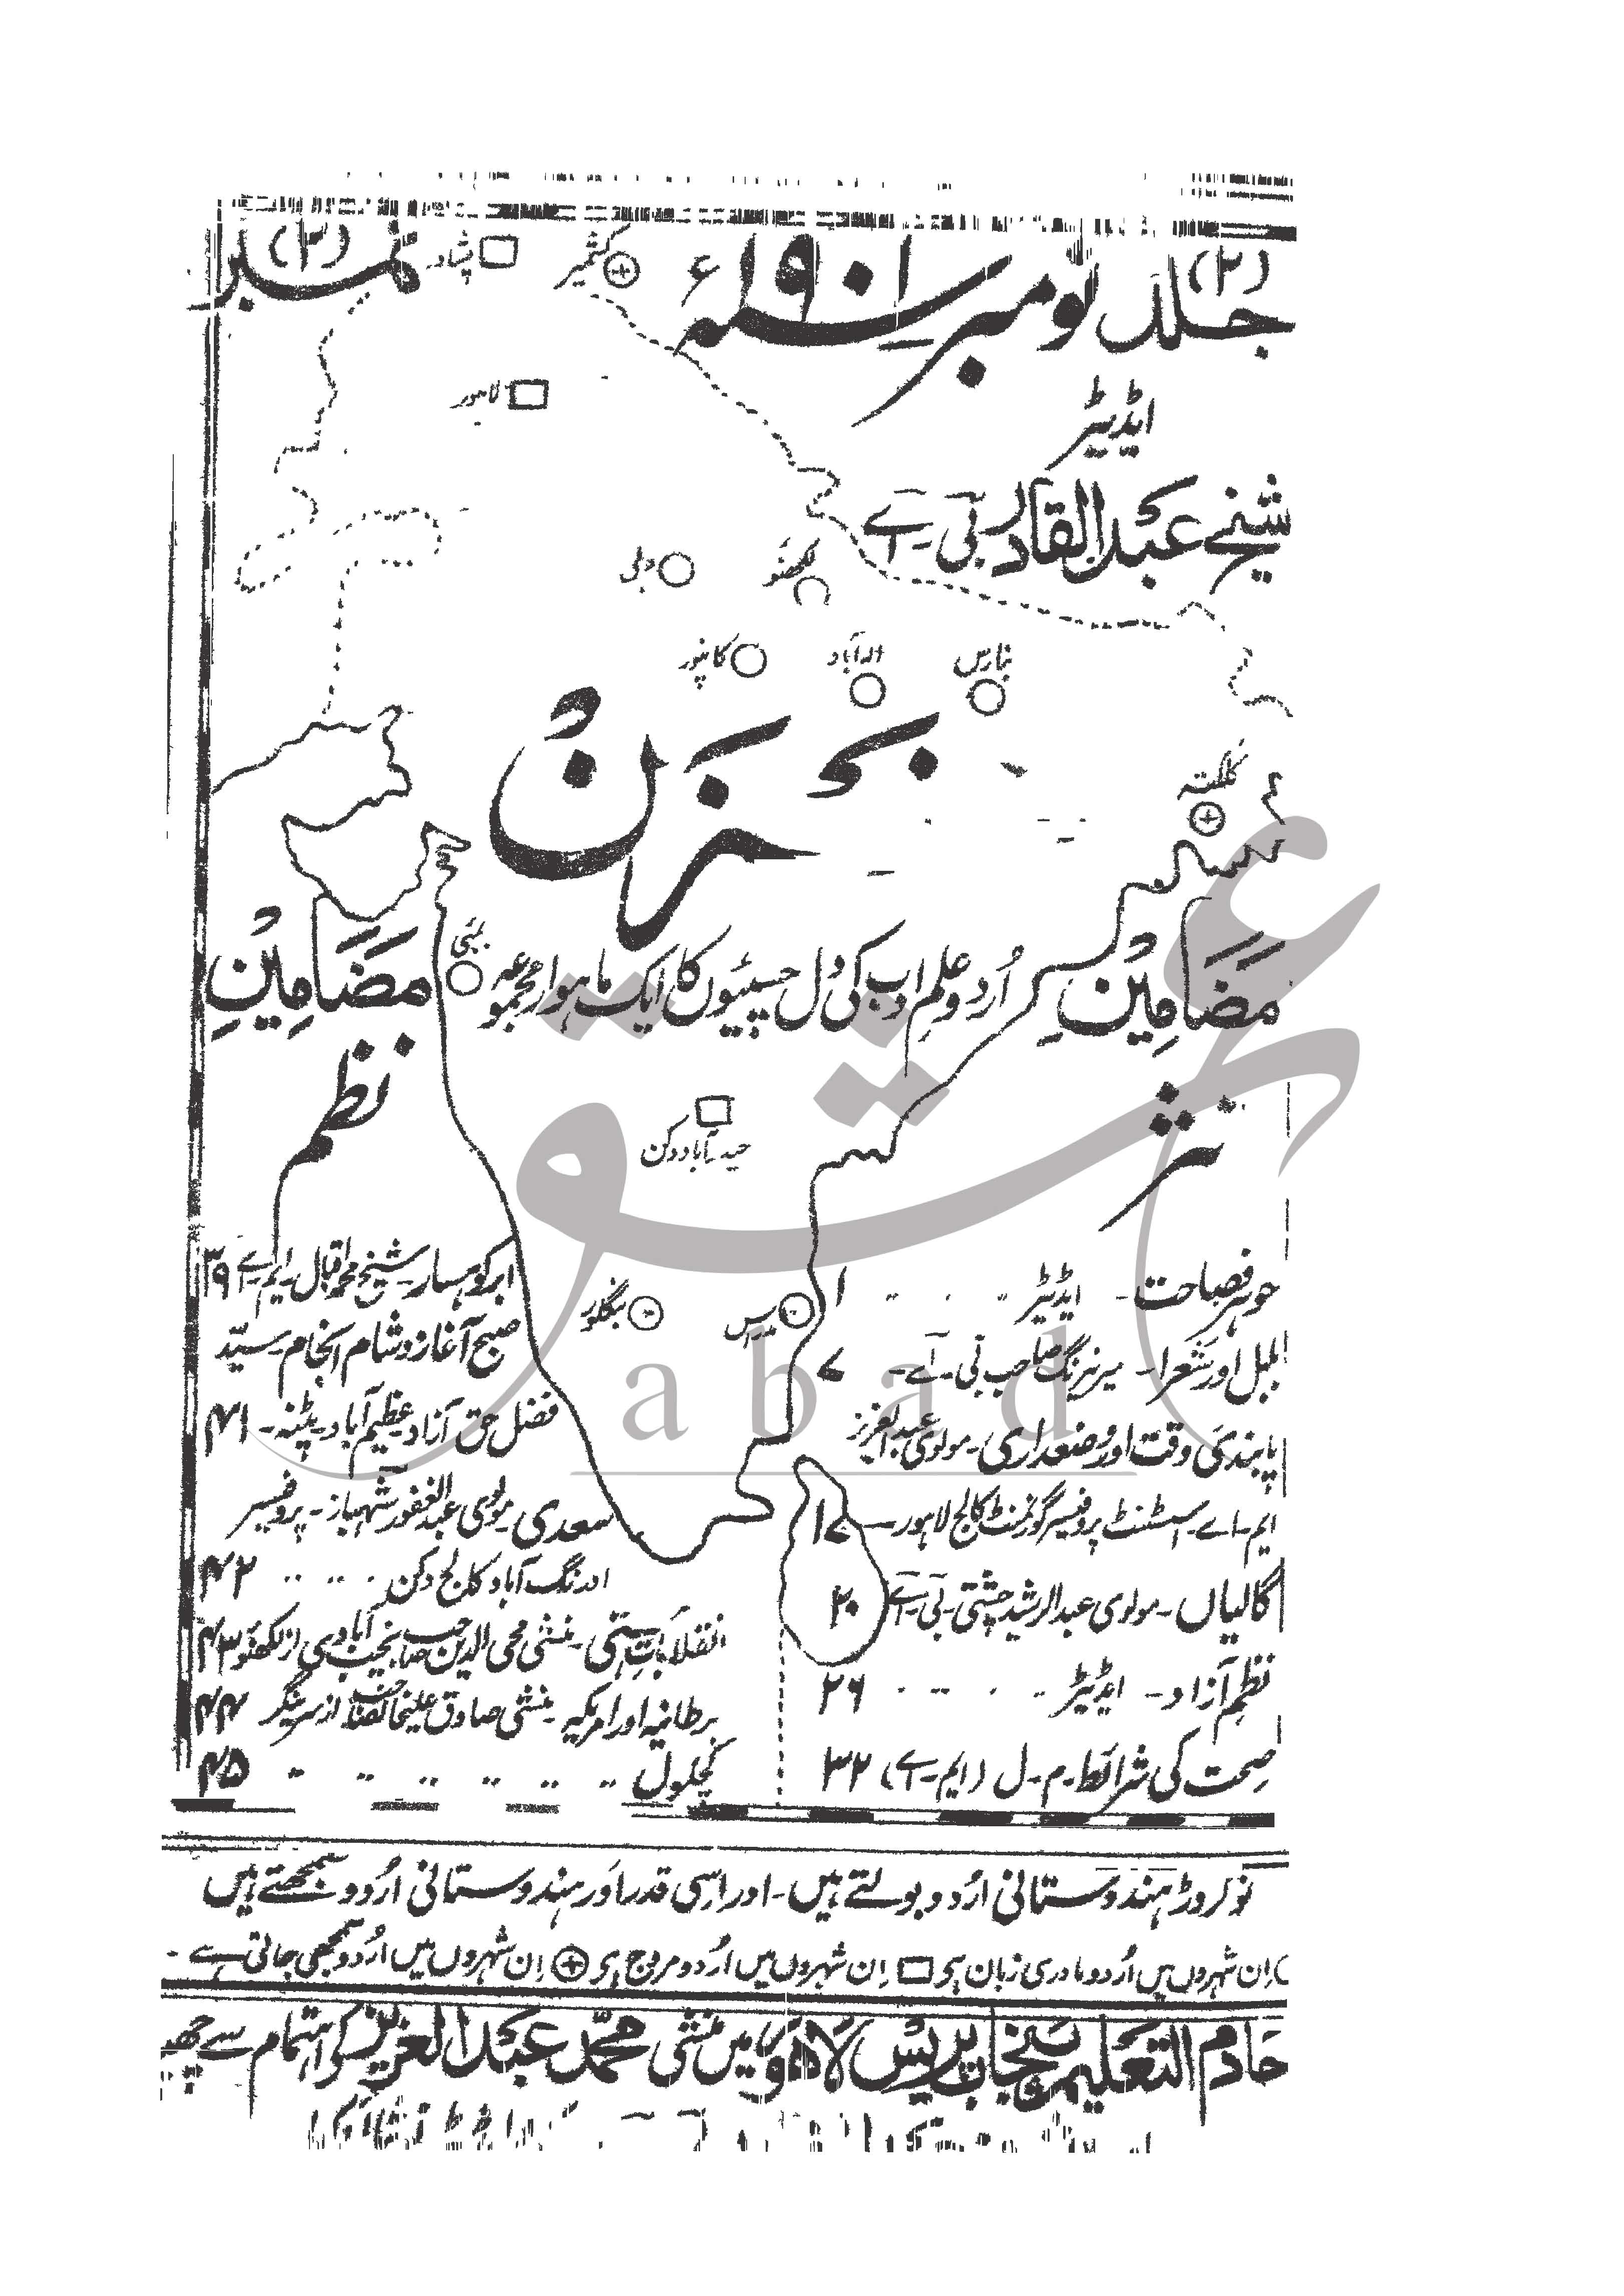 جلد (۲) نومبر سنہ ۱۹۰۱ء نمبر (۲)
کشمیر
پشاور
ایڈیٹر
لاہور
شیخ عبدالقادر بی۔اے
لکھنؤ
دہلی
بنارس
الہ آباد
کانپور
مخزن
کلکتہ
بمبئی
اُردو علم ادب کی دلچسپیوں کا ایک ماہوار مجموعہ
حیدرآباد دکن
بنگلور
مدراس
مضامین
نثر
جوہر فصاحت۔ ایڈیٹر ۱
بلبل اور شعرا۔ میر نیرنگ صاحب بی۔اے۔ ۷
پابندی وقت اور وضعداری۔ مولوی عبدالعزیز
ایم۔اے۔ اسسٹنٹ پروفیسر گورنمنٹ کالج لاہور۔ ۱۷
گالیاں۔ مولوی عبدالرشید چشتی۔ بی۔اے ۲۰
نظم آزاد۔ ایڈیٹر ۲۶
صحت کی شرائط۔ م۔ل (ایم۔اے) ۳۲
مضامین
نظم
ابر کوہسار۔ شیخ محمد اقبال۔ ایم۔اے ۳۹
صبح آغاز و شام انجام۔ سیّد
فضل حق آزاد۔ عظیم آباد۔ پٹنہ۔ ۴۱
سعدی۔ مولوی عبدالغفور شہباز۔ پروفیسر
اورنگ آباد کالج دکن ۴۲
انقلابات ہستی۔ منشی محی الدین صاحب نجیب آبادی از لکھنؤ ۴۳
برطانیہ اور امریکہ۔ منشی صادق علیخان صاحب از سرینگر ۴۴
کچلول ۴۵
نو کروڑ ہندوستانی اُردو بولتے ہیں۔ اور اسی قدر اَور ہندوستانی اُردو سمجھتے ہیں
اِن شہروں میں اُردو مادری زبان ہی اِن شہروں میں اُردو مروج ہی اِن شہروں میں اُردو سمجھی جاتی ہے۔
خادم التعلیم پنجاب پریس لاہور میں منشی محمد عبدالعزیز کے اہتمام سے